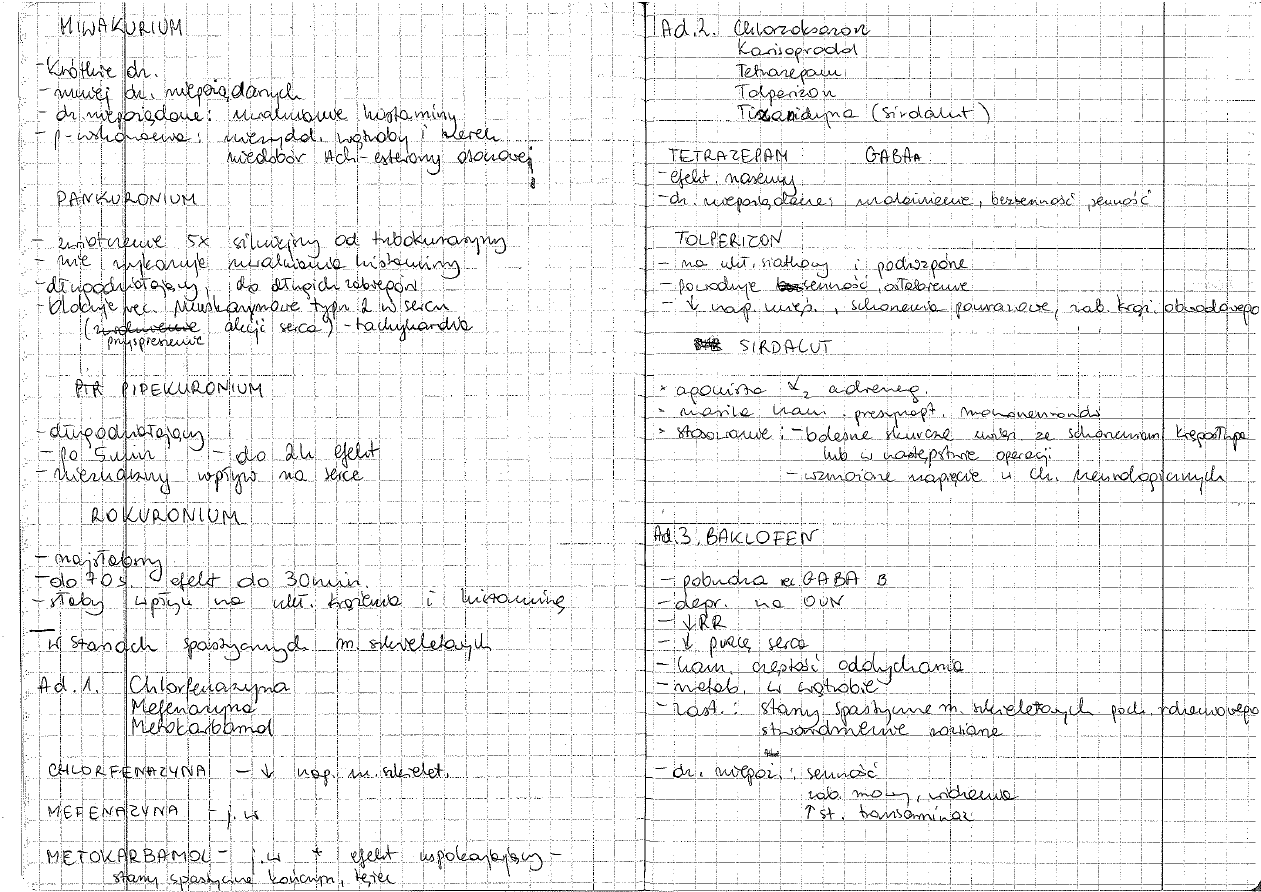 MIWAKURIUM
- Krótkie dr.
- mniej dr. niepożądanych
- dr. niepożądane: uwalnianie histaminy
- p-wskazania: niewydol. wątroby i nerek
niedobór Ach-esterazy osoczowej
PANKURONIUM
- zwiotczenie 5x silniejszy od tubokuraryny
- nie wykazuje uwalniania histaminy
- długodziałający, do długich zabiegów
- blokuje rec. muskarynowe typu 2 w sercu
(zwolnienie akcji serca) - tachykardia
przyspieszenie
PIPEKURONIUM
- długodziałający
- po 5 min - do 2h efekt
- nieznaczny wpływ na serce
ROKURONIUM
- najsłabszy
- do 70 s. efekt do 30 min.
- słaby wpływ na ukł. krążenia i histaminę
W stanach spastycznych m. szkieletowych
Ad. 1. Chlorfenazyna
Mefenazyna
Metokarbamol
CHLORFENAZYNA - ↓ nap. m. szkielet.
MEFENAZYNA - j.w
METOKARBAMOL - j.w + efekt uspokajający -
stany spastyczne kończyn, tężec
Ad. 2. Chlorzoksazon
Karisoprodol
Tetrazepam
Tolperizon
Tizanidyna (Sirdalut)
TETRAZEPAM GABAA
- efekt nasenny
- dr. niepożądane: uzależnienie, bezsenność, senność
TOLPERIZON
- na ukł. siatkowy i podwzgórze
- powoduje senność, osłabienie
- ↓ nap. mięś., schorzenia pourazowe, zab. krąż. obwodowego
SIRDALUT
* agonista α2 adreneg.
* nasila ham. presynapt. motoneuronów
* stosowanie: - bolesne skurcze zwiąż. ze schorzeniami kręgosłupa
lub w następstwie operacji
- wzmożone napięcie w ch. neurologicznych
Ad. 3. BAKLOFEN
- pobudza rec GABA B
- depr. na OUN
- ↓RR
- ↓ pracę serca
- ham. częstość oddychania
- metab. w wątrobie
- zast.: stany spastyczne m. szkieletowych poch. rdzeniowego
stwardnienie rozsiane
- dr. niepoż.: senność
zab. mowy, widzenia
↑ st. transaminaz